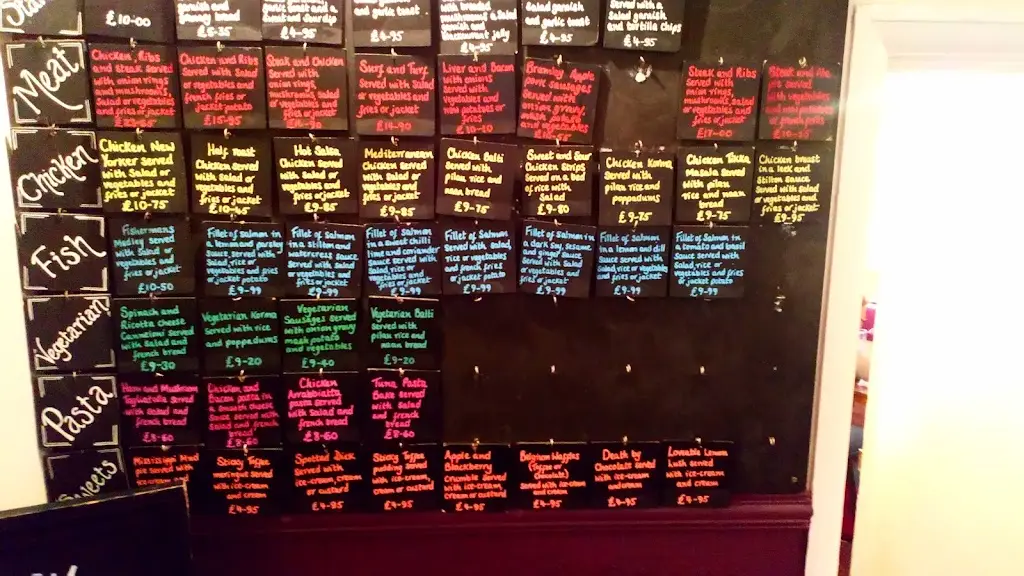 £10-00
garnish and
granary bread
£4-95
£4-95
and garlic toast
£4-95
with breaded
mushrooms a salad
garnish and
£4-95
Salad garnish
and garlic toast
£4-95
Salad garnish
and tortilla chips
£4-95
Meat
Chicken, Ribs
and steak served
with onion rings
and mushrooms
Salad or vegetables
and fries or
jacket potato
Chicken and Ribs
Served with Salad
or vegetables and
french fries or
jacket potato
£15-95
Steak and Chicken
Served with
onion rings,
mushrooms, Salad
or vegetables and
fries or jacket
Surf and Turf
Served with Salad
or vegetables
and fries or
jacket potato
£14-90
Liver and Bacon
with onions
served with
vegetables and
new potatoes or
fries
£10-10
Bramley Apple
Pork Sausages
Served with
onion gravy,
mash potato
and vegetables
Steak and Ribs
Served with
onion rings,
mushrooms, Salad
or vegetables
and fries or
jacket potato
£17-00
Steak and Ale
Chicken
Chicken New
Yorker Served
with Salad or
vegetables and
fries or jacket
£10-75
Half roast
Chicken Served
with Salad or
vegetables and
fries or jacket
Hot Salsa
Chicken Served
with Salad or
vegetables and
fries or jacket
£9-85
Mediterranean
Chicken Served
with Salad or
vegetables and
fries or jacket
£9-85
Chicken Balti
Served with
pilau rice and
naan bread
£9-75
Sweet and Sour
Chicken Strips
Served on a bed
of rice with
Salad
£9-80
Chicken Korma
Served with
pilau rice and
poppadums
£9-75
Chicken Tikka
Masala Served
with pilau
rice and naan
bread
£9-75
Chicken breast
in a leek and
Stilton Sauce
Served with Salad
or vegetables and
fries or jacket
£9-95
Fish
Fishermans
Medley served
with Salad or
vegetables and
fries or jacket
£10-50
Fillet of Salmon
in a lemon and parsley
Sauce Served with
Salad, rice or
vegetables and fries
or jacket potato
£9-99
Fillet of Salmon
in a stilton and
watercress Sauce
Served with Salad,
rice or vegetables
and fries or jacket
£9-99
Fillet of Salmon
in a Sweet chilli
lime and coriander
Sauce Served with
Salad, rice or
vegetables and fries
or jacket potato
£9-99
Fillet of Salmon
Served with Salad,
rice or
vegetables and
french fries or
jacket potato
£9-99
Fillet of Salmon in
a dark soy, sesame
and ginger Sauce
Served with Salad,
rice or vegetables
and fries or
jacket potato
£9-99
Fillet of Salmon
in a lemon and dill
Sauce Served with
Salad, rice or
vegetables and fries
or jacket potato
£9-99
Fillet of Salmon
in a tomato and basil
Sauce Served with
Salad, rice or
vegetables and fries
or jacket potato
£9-99
Vegetarian!
Spinach and
Ricotta cheese
Cannelloni served
with Salad and
french bread
£9-30
Vegetarian Korma
Served with rice
and poppadums
£9-20
Vegetarian
Sausages Served
with onion gravy
mash potato
and vegetables
£9-40
Vegetarian Balti
Served with
pilau rice and
naan bread
£9-20
Pasta
Ham and Mushroom
Tagliatelle Served
with Salad and
french bread
£8-60
Chicken and
Bacon pasta in
a Smooth cheese
Sauce served with
Salad and french
bread
£8-60
Chicken
Arrabbiatta
pasta served
with Salad and
french bread
£8-60
Tuna Pasta
Bake Served
with Salad
and french
bread
£8-60
Sweets
Mississippi Mud
pie served with
ice-cream and
Sticky Toffee
meringue Served
with ice-cream
and cream
£4-95
Spotted Dick
Served with
ice-cream, cream
or custard
£4-95
Sticky Toffee
pudding Served
with ice-cream,
cream or custard
£4-95
Apple and
Blackberry
Crumble Served
with ice-cream,
cream or custard
£4-95
Belgium Waffles
(Toffee or
Chocolate)
Served with ice-cream
and cream
£4-95
Death by
Chocolate Served
with ice-cream
and cream
£4-95
Loveable Lemon
Lush served
with ice-cream
and cream
£4-95